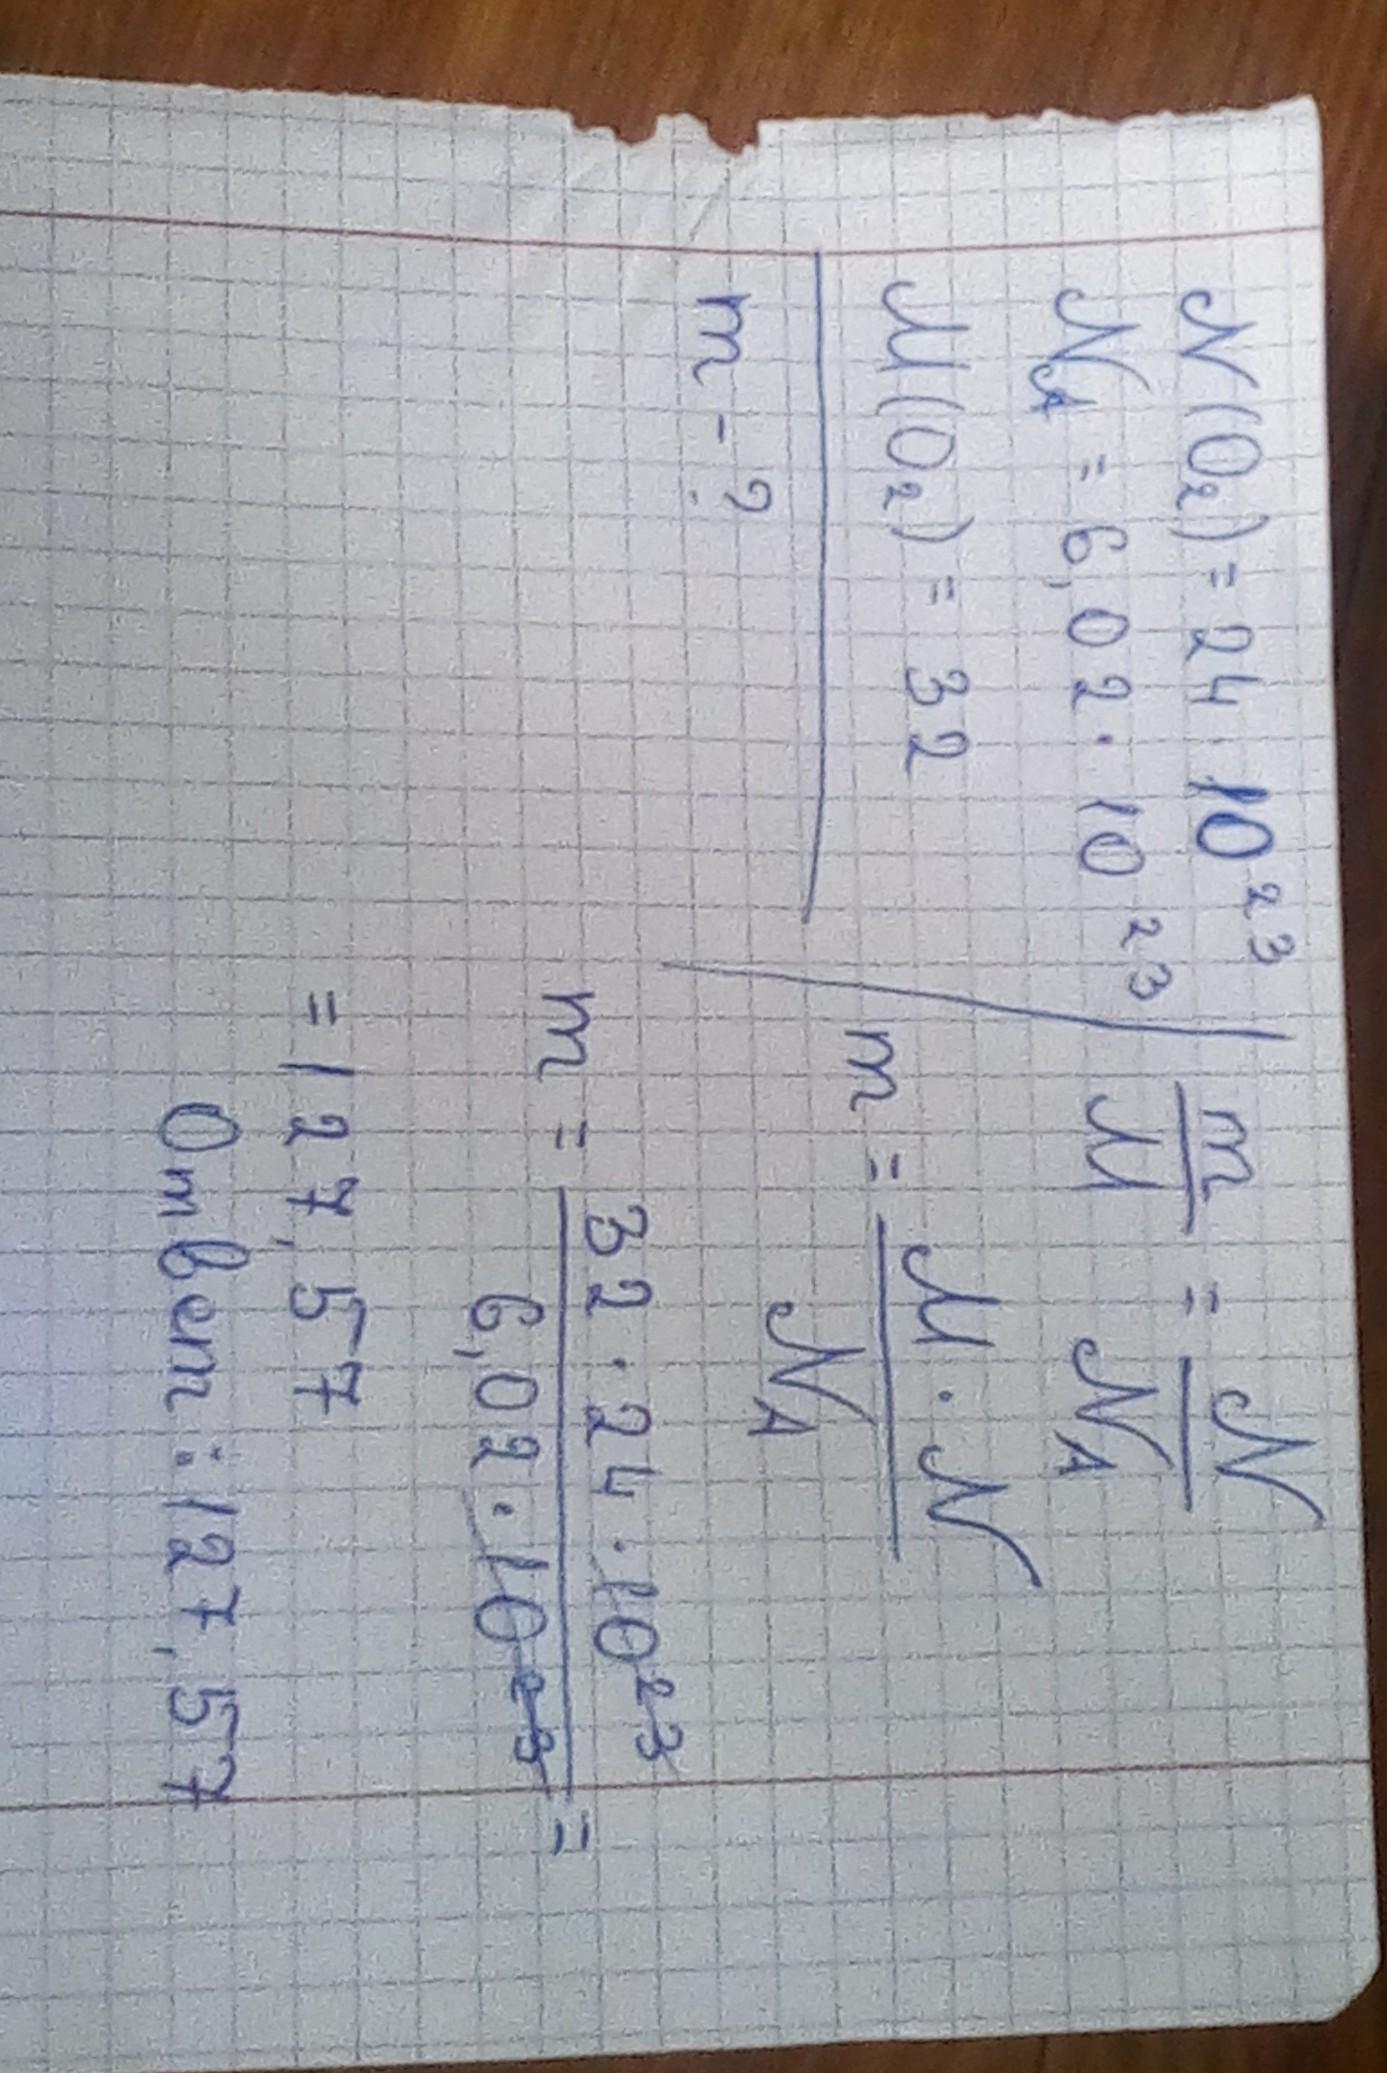 N(O₂) = 24 · 10²³
N_A = 6,02 · 10²³
M(O₂) = 32
m - ?
m/M = N/N_A
m = M · N / N_A
m = 32 · 24 · 10²³ / 6,02 · 10²³ =
= 127,57
Ответ : 127,57